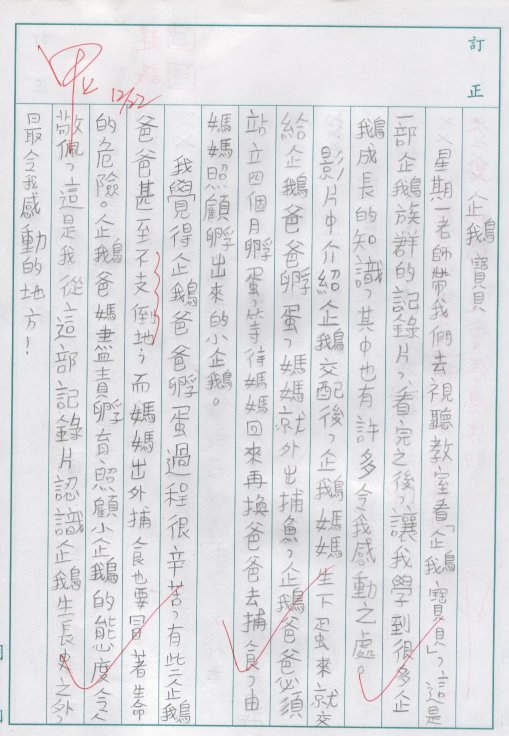 訂正
企鵝寶貝
星期一老師帶我們去視聽教室看「企鵝寶貝」，這是
一部企鵝族群的記錄片，看完之後，讓我學到很多企
鵝成長的知識，其中也有許多令我感動之處。
影片中介紹企鵝交配後，企鵝媽媽生下蛋來就交
給企鵝爸爸孵蛋，媽媽就外出捕魚，企鵝爸爸必須
站立四個月孵蛋，等待媽媽回來再換爸爸去捕食，由
媽媽照顧孵出來的小企鵝。
我覺得企鵝爸爸孵蛋過程很辛苦，有些企鵝
爸爸甚至不支倒地，而媽媽出外捕食也要冒著生命
的危險。企鵝爸媽盡責孵育、照顧小企鵝的態度令人
敬佩，這是我從這部記錄片認識企鵝生長史之外，
最令我感動的地方！
甲
12/22